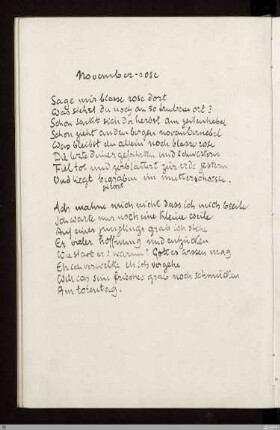 November-rose
Sage mir blasse rose dort
Was stehst du noch an so trübem ort?
Schon senkt sich der herbst am zeitenhebel
Schon zieht an den bergen novembernebel
Was bleibst du allein noch blasse rose
Die letzte deiner gefährten und schwestern
Fiel tot und zerblättert zur erde gestern
Und liegt begraben im mutterschosse.
Ach mahne mich nicht dass ich mich beeile
Ich warte nur noch eine kleine weile
Auf eines jünglings grab ich stehe
Er vieler hoffnung und entzücken
Wie starb er? warum? Gott es wissen mag
Eh ich verwelke eh ich vergehe
Will ich sein frisches grab noch schmücken
Am totentag.